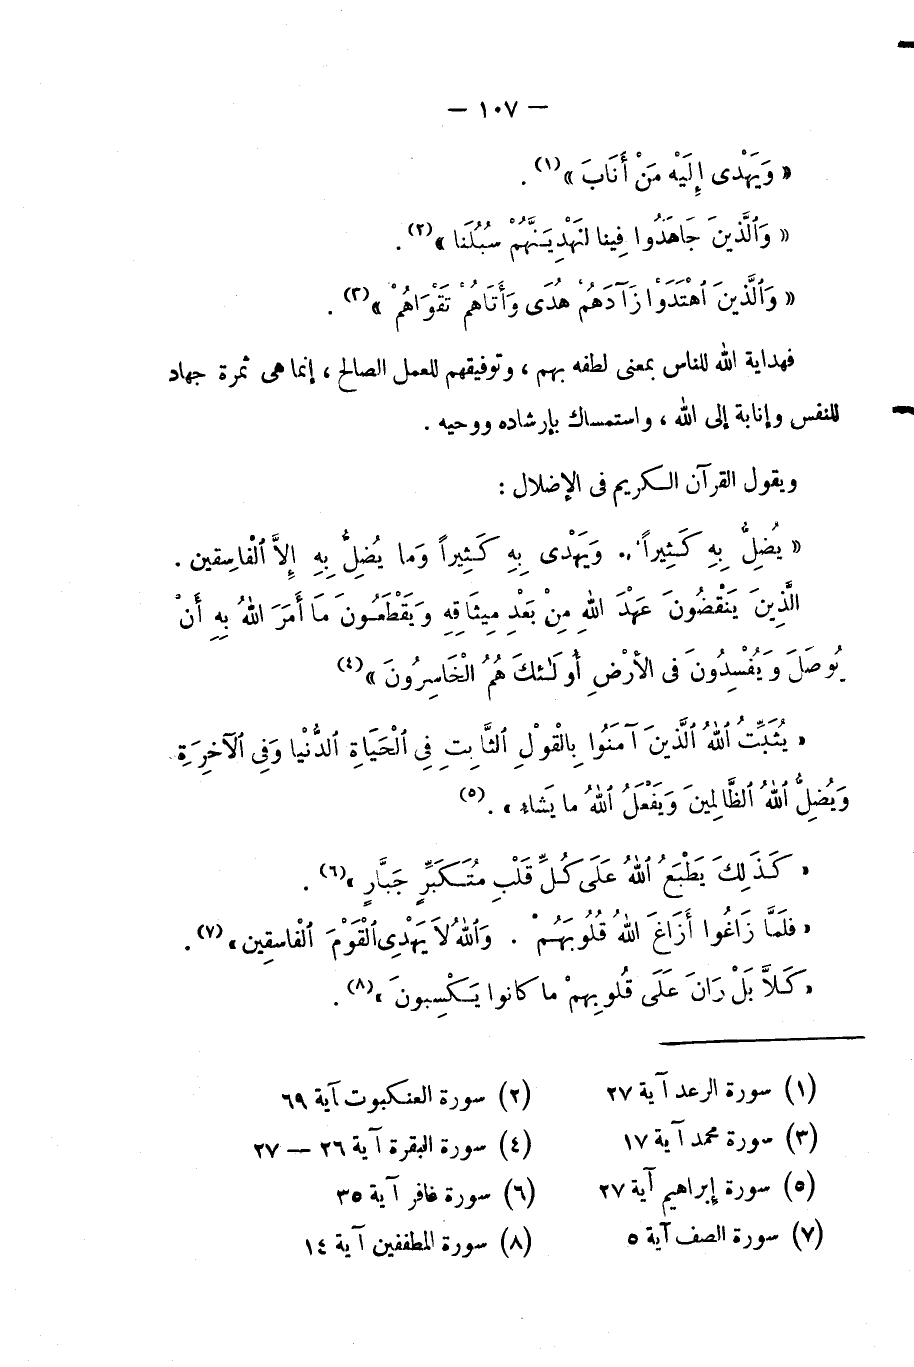 — ١٠٧ —
« وَيَهْدِى إِلَيْهِ مَنْ أَنَابَ »(١) .
« وَٱلَّذِينَ جَاهَدُوا فِينا لنَهْدِيَنَّهُمْ سُبُلَنا »(٢) .
« وَٱلَّذِينَ ٱهْتَدَوْا زَآدَهُمْ هُدًى وَأَتَاهُمْ تَقْوَاهُمْ »(٣) .
فهداية الله للناس بمعنى لطفه بهم ، وتوفيقهم للعمل الصالح ، إنما هى ثمرة جهاد
للنفس وإنابة إلى الله ، واستمساك بإرشاده ووحيه .
ويقول القرآن الكريم فى الإضلال :
« يُضِلُّ بِهِ كَثِيراً .. وَيَهْدِى بِهِ كَثِيراً وَما يُضِلُّ بِهِ إِلاَّ ٱلْفَاسِقين .
الَّذِينَ يَنْقُضُونَ عَهْدَ اللهِ مِنْ بَعْدِ مِيثَاقِهِ وَيَقْطَعُونَ مَا أَمَرَ اللهُ بِهِ أَنْ
يُوصَلَ وَيُفْسِدُونَ فى الأرْضِ أُولَٰئكَ هُمُ الْخَاسِرُونَ »(٤)
« يُثَبِّتُ ٱللهُ ٱلَّذِينَ آمَنُوا بِالْقوْلِ ٱلثَّابِتِ فِى ٱلْحَيَاةِ ٱلدُّنْيا وَفِى ٱلآخِرِةِ
وَيُضِلُّ ٱللهُ ٱلظَّالِمِينَ وَيَفْعَلُ ٱللهُ ما يَشاء » .(٥)
« كَذَلِكَ يَطْبَعُ ٱللهُ عَلَى كُلِّ قَلْبِ مُتَكَبِّرٍ جَبَّارٍ »(٦) .
« فلَمَّا زَاغُوا أَزَاغَ اللهُ قُلُوبَهُمْ . وَٱللهُ لاَ يَهْدِى ٱلْقَوْمَ ٱلْفاسِقين »(٧) .
« كَلاَّ بَلْ رَانَ عَلَى قُلُوبِهِمْ ما كانوا يَكْسِبونَ »(٨) .
(١) سورة الرعد آية ٢٧
(٢) سورة العنكبوت آية ٦٩
(٣) سورة محمد آية ١٧
(٤) سورة البقرة آية ٢٦ — ٢٧
(٥) سورة إبراهيم آية ٢٧
(٦) سورة غافر آية ٣٥
(٧) سورة الصف آية ٥
(٨) سورة المطففين آية ١٤